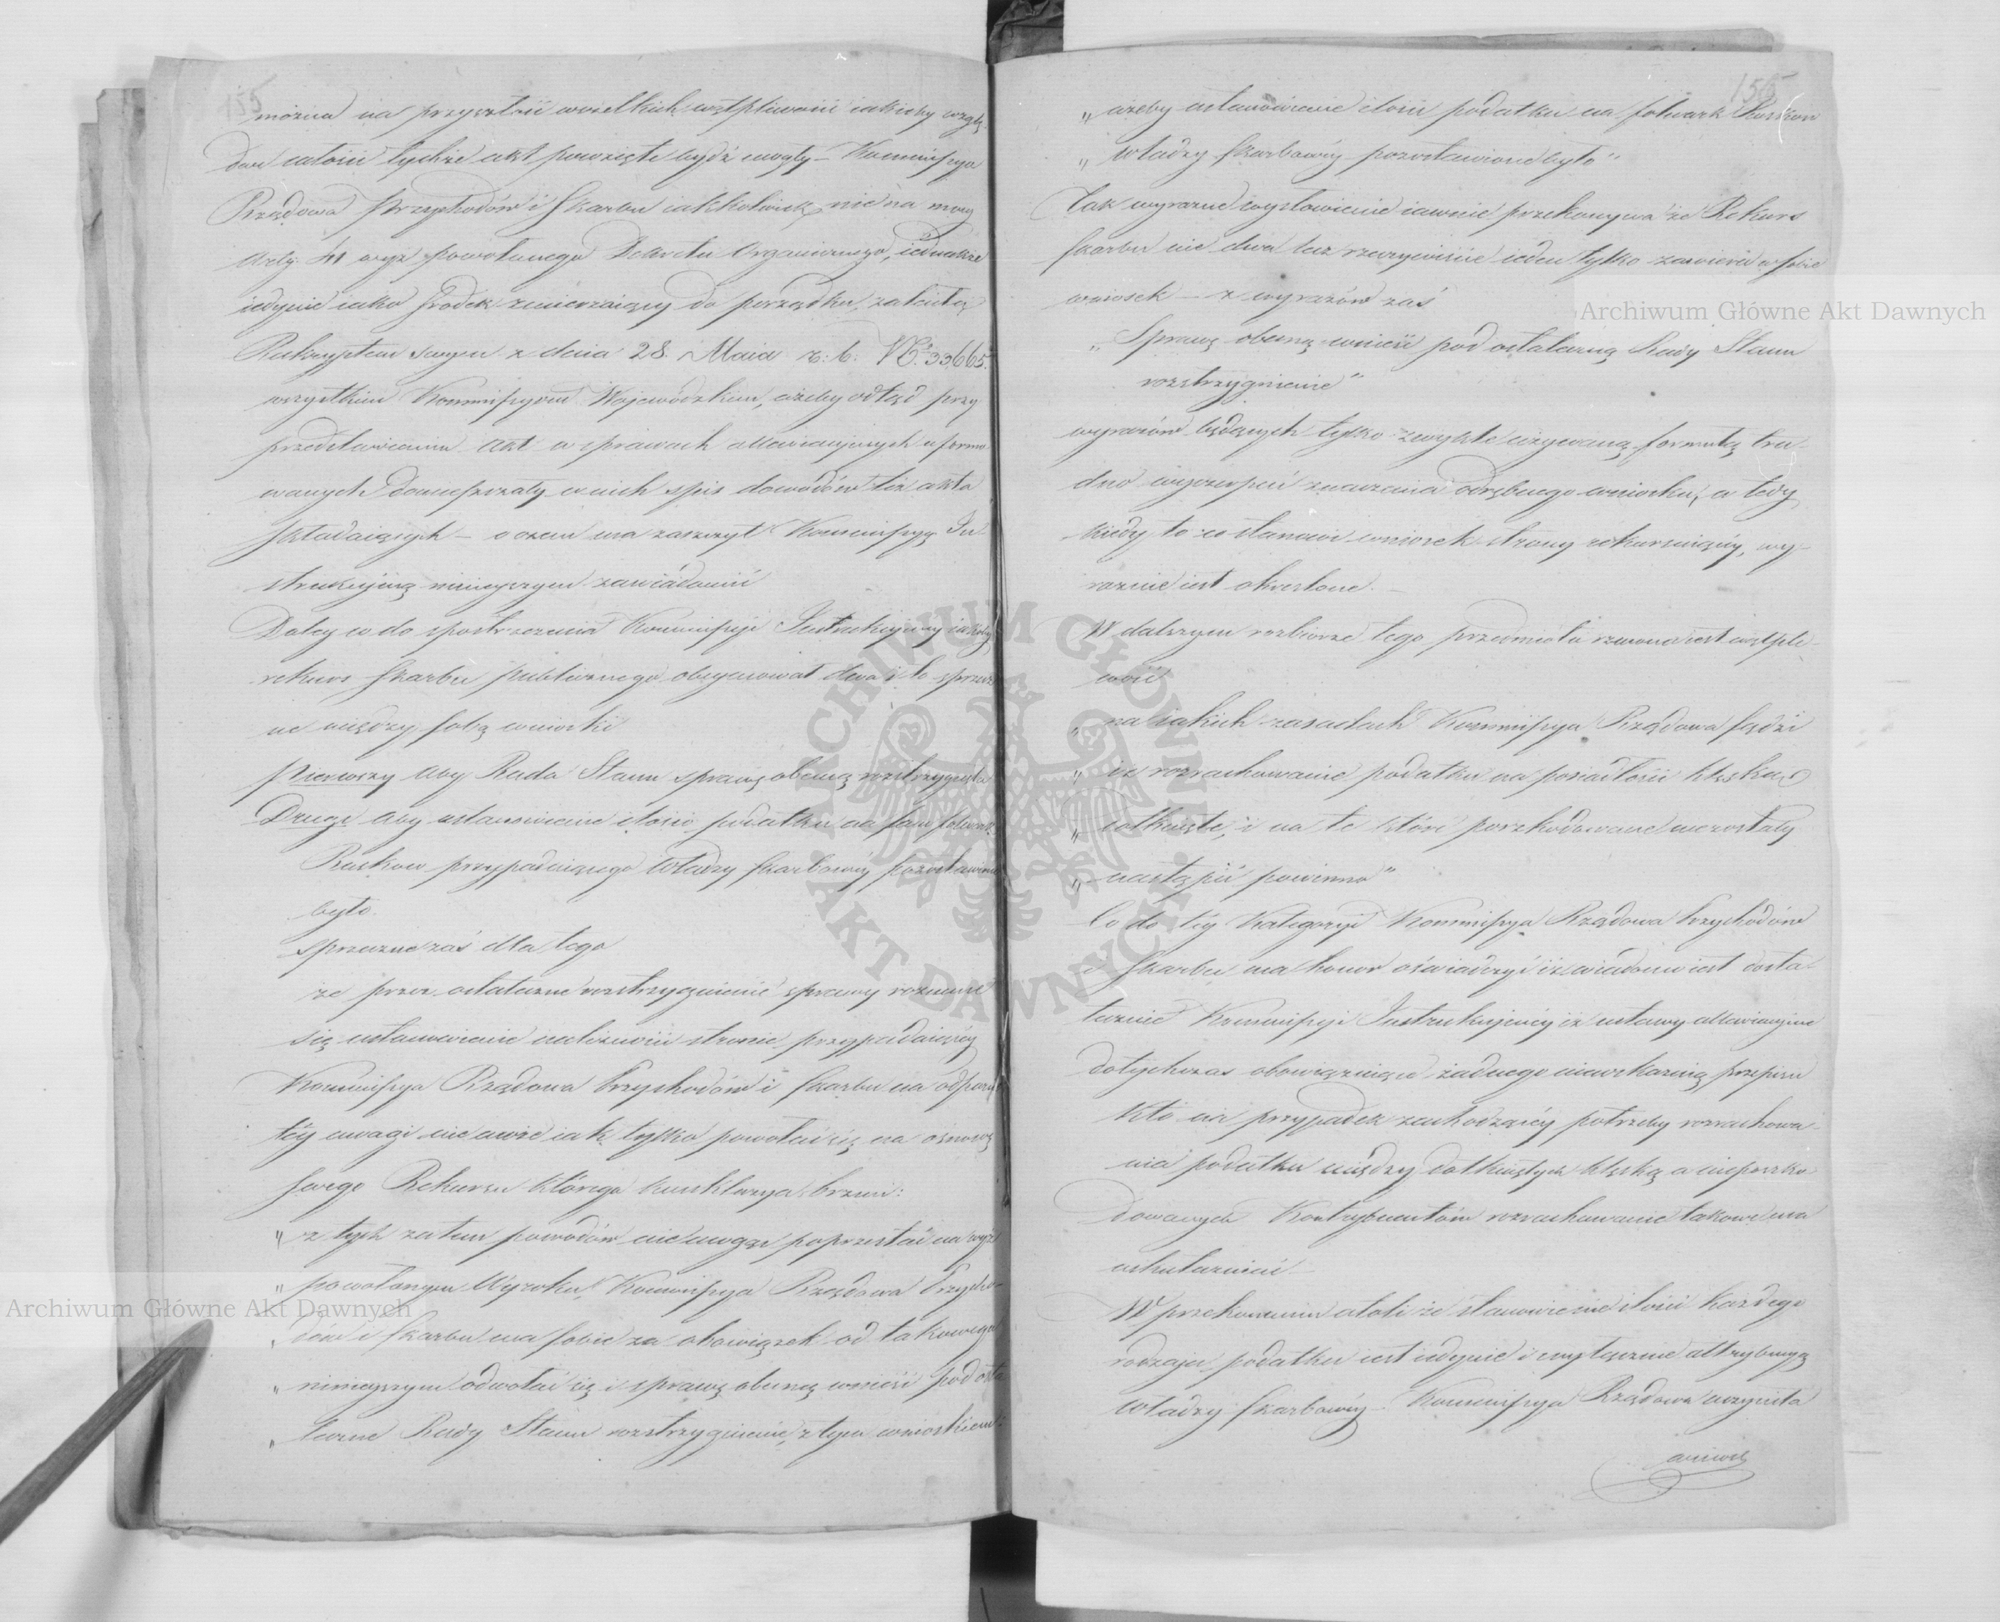 155
można na przyszłość wszelkich wątpliwości iakieby wzglę-
dem całości tychże akt powzięte bydź mogły – Kommissya
Rządowa Przychodów i Skarbu iakkolwiek nie na mocy
Arty: 41 wyż powołanego Dekretu Organicznego, iednakże
iedynie iako środek zmierzaiący do porządku, zaleciła
Reskryptem swym z dnia 28. Maia r: b: No. 33,665.
wszystkim Kommissyom Woiewódzkim, ażeby odtąd przy
przedstawieniu akt w sprawach allewiacyjnych uformo
wanych domieszczały w nich spis dowodów też akta
składaiących – o czem ma zaszczyt Kommissyą In-
strukcyjną nineyszym zawiadomić
Daley co do spostrzeżenia Kommissyi Instrukcyjney iakoby
rekurs Skarbu publicznego obeymował dwa i to sprzecz
ne między sobą wnioski
Pierwszy Aby Rada Stanu sprawę obecną rozstrzygnęła
Drugi Aby ustanowienie ilości podatku na sam folwark
Ruszków przypadaiącego Władzy Skarbowéy pozostawione
było.
sprzeczne zaś dla tego
że przez ostateczne rozstrzygnienie sprawy rozumie
się ustanowienie należności stronie przypadaiącéy
Kommissya Rządowa Przychodów i Skarbu na odparcie
téy uwagi nie umie iak tylko powołać się na osnowę
swego Rekursu którego konkluzya brzmi:
„ z tych zatem powodów nie mogąc poprzestać na wyż
„ powołanym Wyroku Kommissya Rządowa Przycho-
„ dów i Skarbu ma sobie za obowiązek od takowego
„ nineyszym odwołać się i sprawę obecną wnieść pod osta
„ teczne Rady Stanu rozstrzygnienie, z tym wnioskiem:
156
„ ażeby ustanowienie ilości podatku na folwark Ruszków
„ Władzy Skarbowéy pozostawione było“
Tak wyraźne wysłowienie iawnie przekonywa że Rekurs
Skarbu nie dwa lecz rzeczywiście ieden tylko zawiera w sobie
wniosek – z wyrazów zaś
„ Sprawę obecną wnieść pod ostateczną Rady Stanu
rozstrzygnienie“
wyrazów będących tylko zwykle używaną formułą tru-
dno wyczerpać znaczenia odrębnego wniosku, a tedy
kiedy to co stanowi wniosek strony rekursuiącéy, wy-
raźnie iest określone. –
W dalszym rozbiorze tego przedmiotu wątpli-
wość
„ na iakich zasadach Kommissya Rządowa sądzi
„ iż rozrachowanie podatku na posiadłości klęską
„ dotknięte, i na te które poszkodowane niezostały
„ nastąpić powinno“
Co do téy Kategoryi Kommissya Rządowa Przychodów
i Skarbu ma honor oświadczyć iż wiadomo iest dosta-
tecznie Kommissyi Instrukcyjnéy iż ustawy allewiacyjne
dotychczas obowiązuiące żadnego niewskazuią przepisu
Kto na przypadek zachodzącéy potrzeby rozrachowa-
nia podatku między dotkniętych klęską a nieposzko-
dowanych Kontrybuentów rozrachowanie takowe ma
uskuteczniać –
W przekonaniu atoli że stanowienie ilości każdego
rodzaju podatku iest iedynie i wyłącznie attrybucyą
Władzy Skarbowéy Kommissya Rządowa uczyniła
Archiwum Główne Akt Dawnych
Archiwum Główne Akt Dawnych
ARCHIWUM GŁÓWNE AKT DAWNYCH